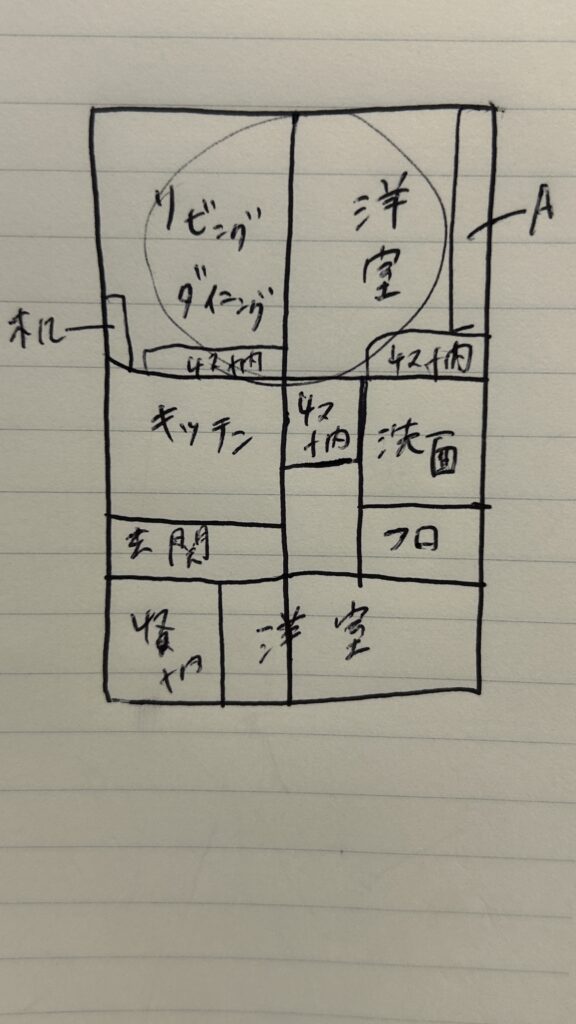 リビング
ダイニング
洋
室
A
机
収納
収納
キッチン
収
納
洗面
玄関
フロ
洋室